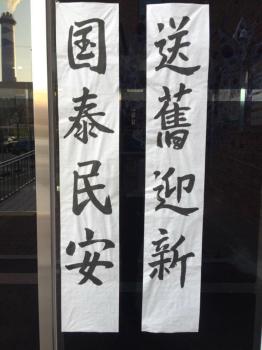 送舊迎新
国泰民安